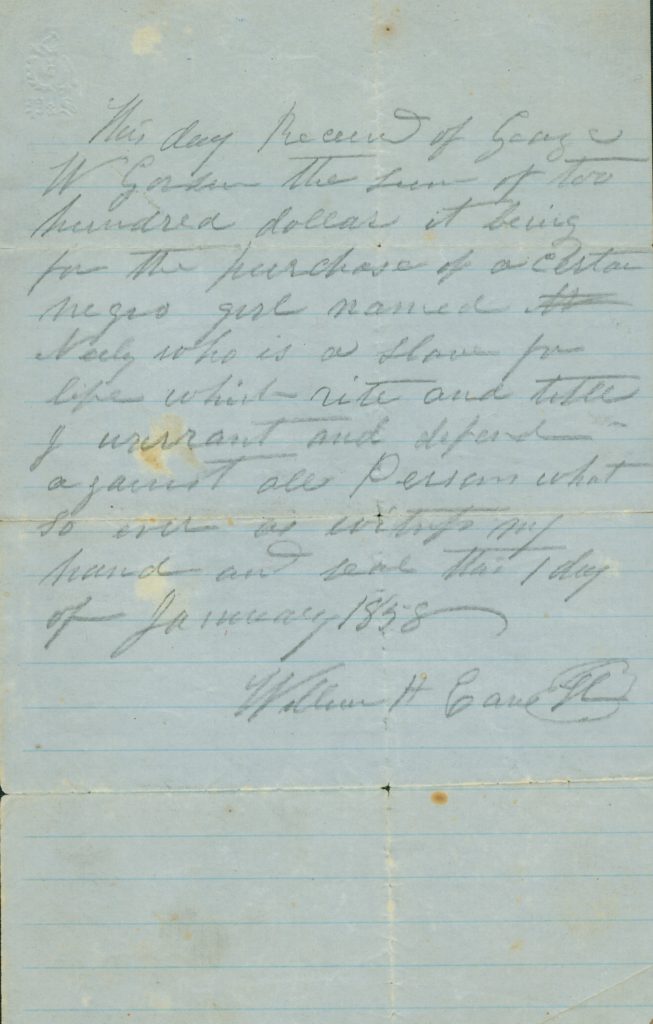 This day Received of George
W the sum of too
hundred dollar it being
for the purchase of a certan
negro girl named
Neely who is a slave for
life which rite and title
I warrant and defend
against all Persons what
so ever as witness my
hand and seal this 1 day
of January 1858
William H